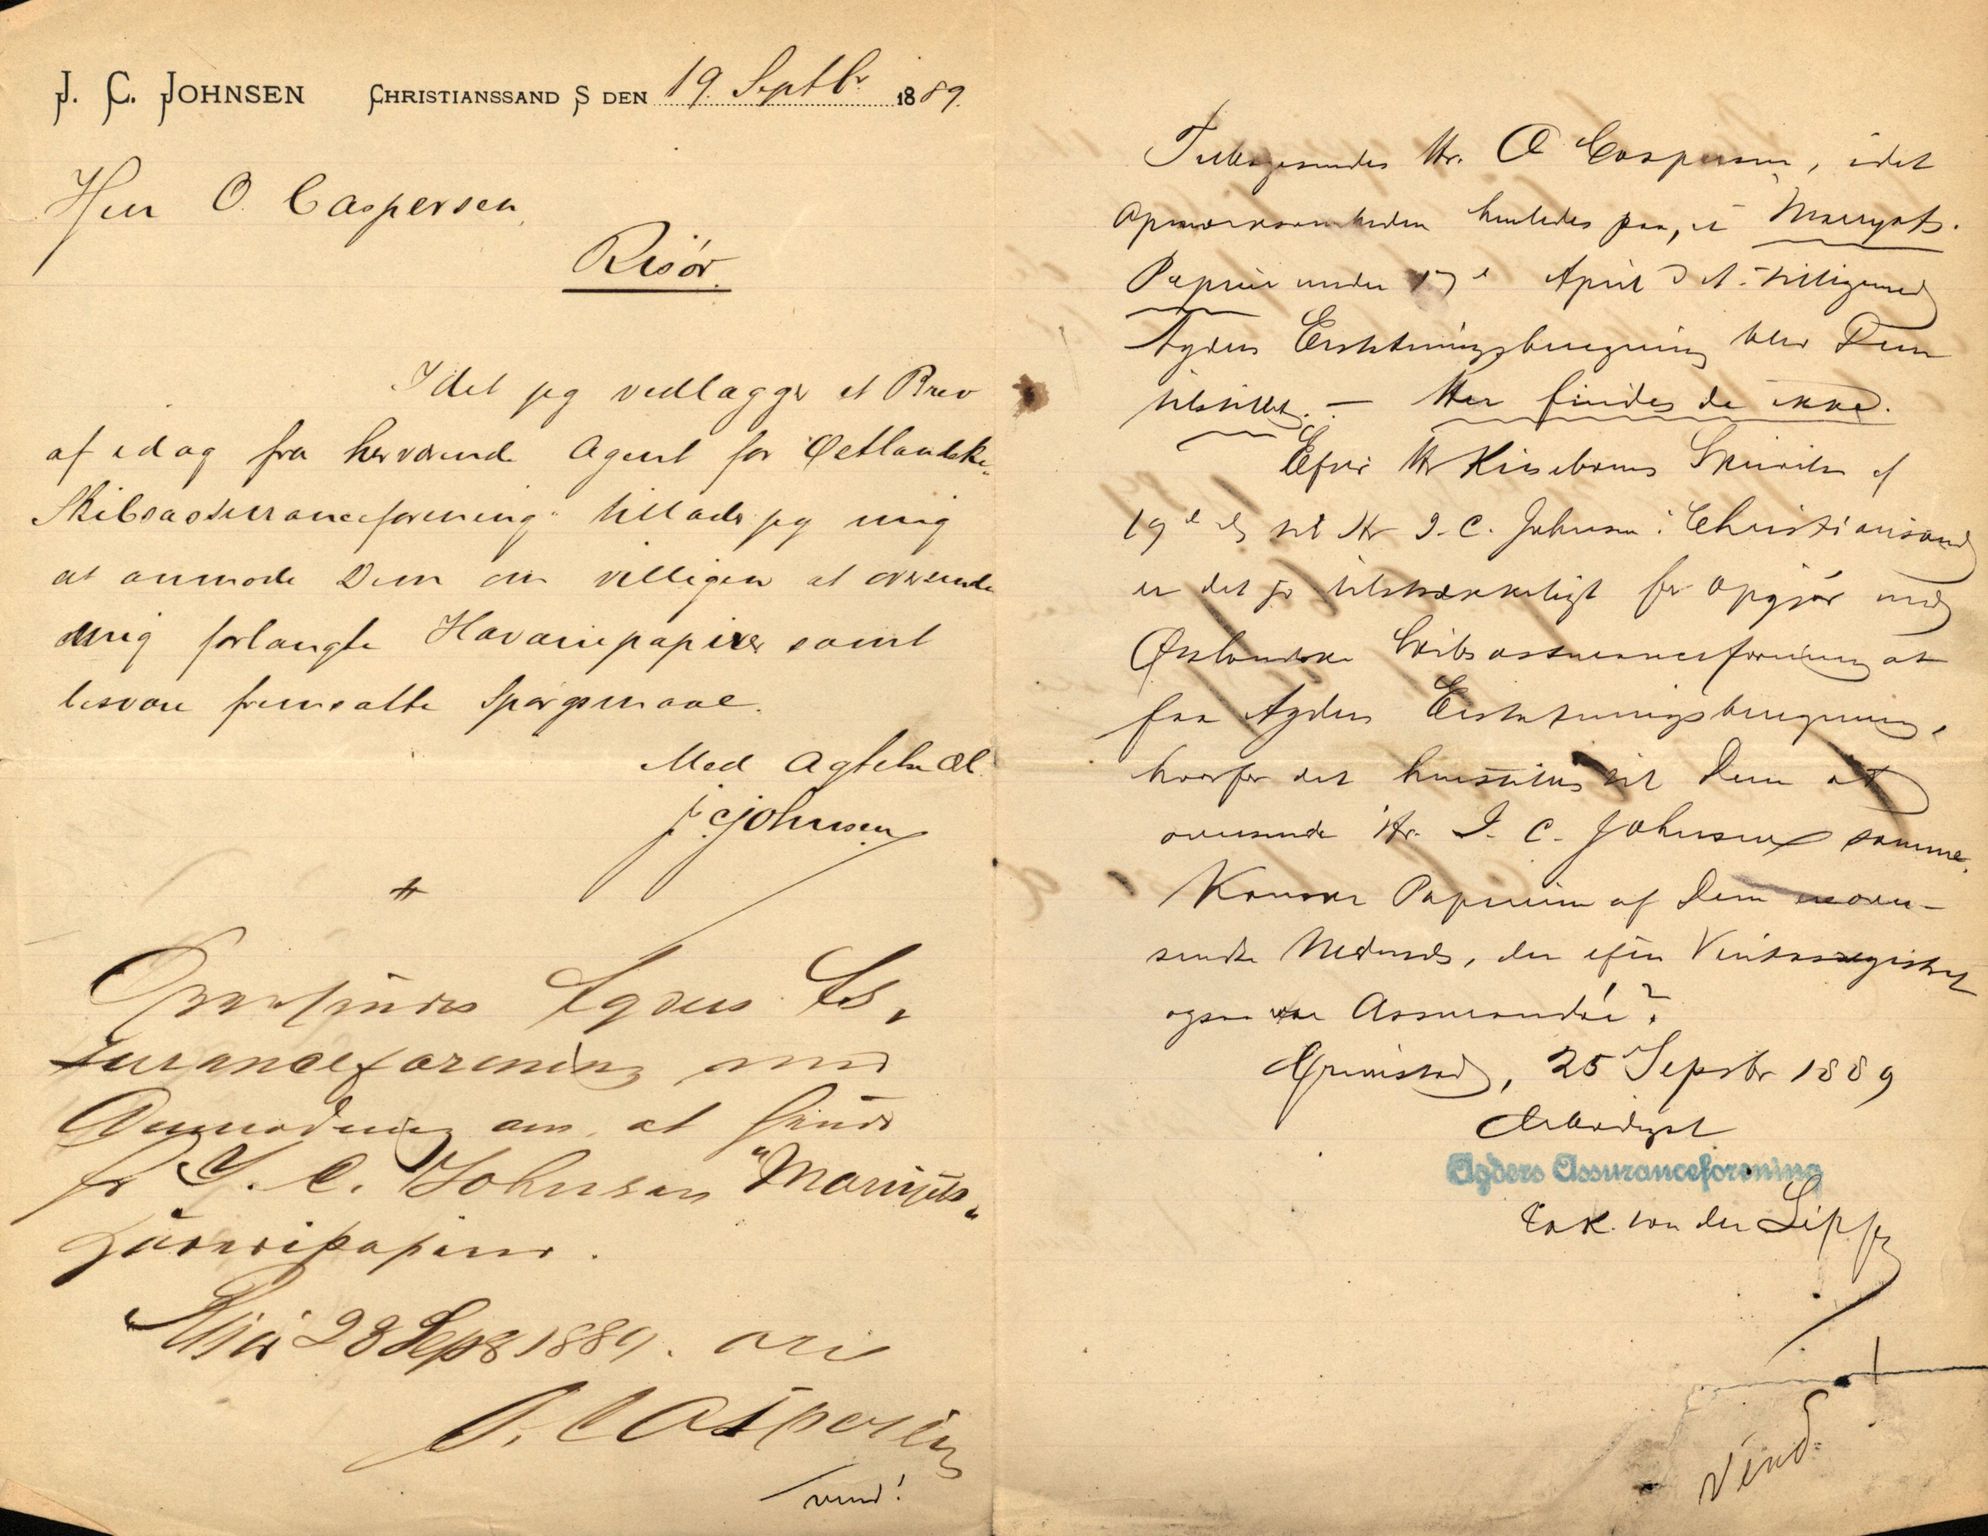 J. C. JOHNSEN CHRISTIANSSAND S DEN 19. Septbr 1889.
Herr O. Caspersen,
Risör.
Idet jeg vedlægger et Brev
af idag fra herværende Agent for Østlandske
Skibsassuranceforening tillader jeg mig
at anmode Dem om villigen at oversende
mig forlangte Havariepapirer samt
besvare fremsatte Spørgsmaal.
Med Agtelse
J. C. Johnsen
Agders As,
suranceforening med
Anmodning om at sende
hr J. C. Johnsen "Marryats"
Havaripapirer.
23 Sept 1889.
O. Caspersen
vend!
Tilbagesendes Hr. O Caspersen, idet
Opmærksomheden henledes paa, at Marryats
Papirer under 17de April d A. tilligemed
Agders Erstatningsberegning blev Dem
tilstillet. — Her findes de ikke.
Efter Hr Skrivelse af
19de ds til Hr J. C. Johnsen i Christiansand
er det jo tilstrækkeligt for Opgjør med
Østlandske Skibsassuranceforening at
faa Agders Erstatningsberegning,
hvorfor det henstilles til Dem at
oversende Hr. J. C. Johnsen samme.
Kanske Papirerne af Dem er over-
sendte Nedenæs, der efter Veritasregistret
ogsaa var Assurandør?
Grimstad, 25 Septbr 1889
Ærbødigst
Agders Assuranceforening
von der Lippe
Vend